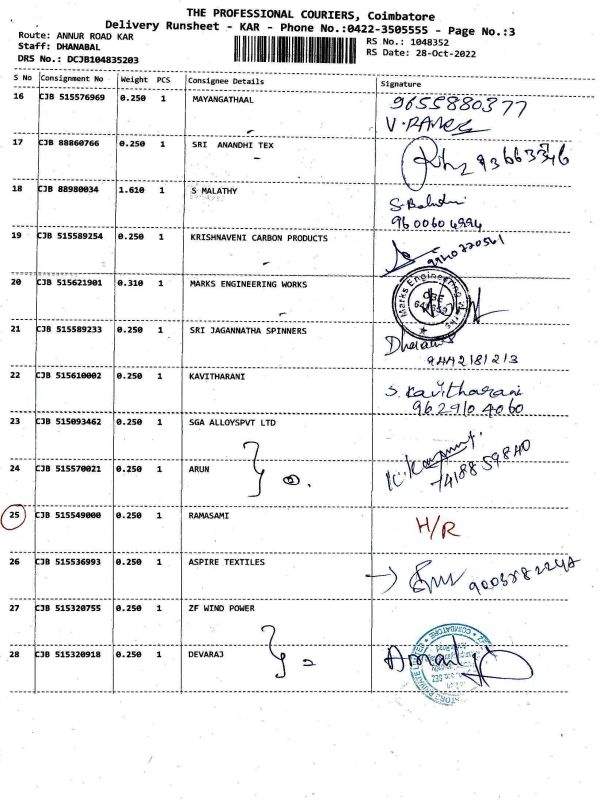 THE PROFESSIONAL COURIERS, Coimbatore
Delivery Runsheet - KAR - Phone No.:0422-3505555 - Page No.:3
Route: ANNUR ROAD KAR
RS No.: 1048352
Staff: DHANABAL
RS Date: 28-Oct-2022
DRS No.: DCJB104835203
S No Consignment No Weight PCS Consignee Details Signature
16 CJB 515576969 0.250 1 MAYANGATHAAL 9655880377
17 CJB 88860766 0.250 1 SRI ANANDHI TEX
18 CJB 88980034 1.610 1 S MALATHY
9600604994
19 CJB 515589254 0.250 1 KRISHNAVENI CARBON PRODUCTS
20 CJB 515621901 0.310 1 MARKS ENGINEERING WORKS
Marks Engineering Works
21 CJB 515589233 0.250 1 SRI JAGANNATHA SPINNERS
22 CJB 515610002 0.250 1 KAVITHARANI S. Kavitharani
9629104060
23 CJB 515093462 0.250 1 SGA ALLOYSPVT LTD
24 CJB 515570021 0.250 1 ARUN
25 CJB 515549000 0.250 1 RAMASAMI H/R
26 CJB 515536993 0.250 1 ASPIRE TEXTILES
27 CJB 515320755 0.250 1 ZF WIND POWER
28 CJB 515320918 0.250 1 DEVARAJ
COIMBATORE